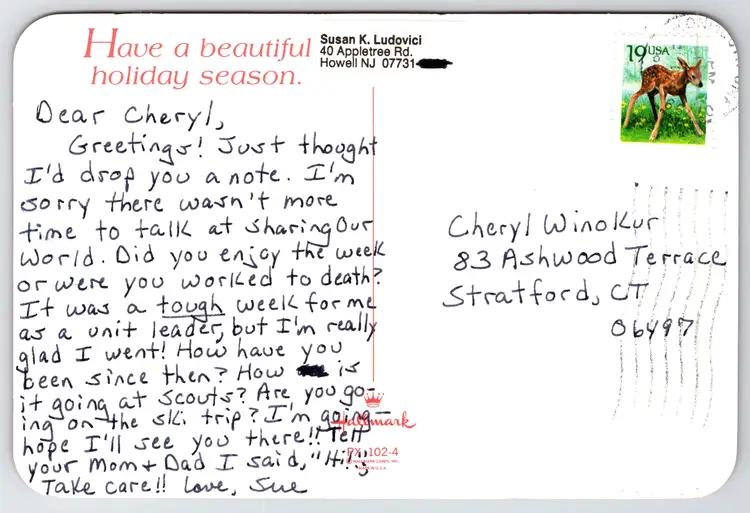 Have a beautiful
holiday season.
Susan K. Ludovici
40 Appletree Rd.
Howell NJ 07731
19 USA
Dear Cheryl,
Greetings! Just thought
I'd drop you a note. I'm
sorry there wasn't more
time to talk at Sharing Our
World. Did you enjoy the week
or were you worked to death?
It was a tough week for me
as a unit leader, but I'm really
glad I went! How have you
been since then? How is
it going at scouts? Are you go-
ing on the ski trip? I'm going-
hope I'll see you there!! Tell
your Mom + Dad I said, "Hi!"
Take care!! Love, Sue
Cheryl Winokur
83 Ashwood Terrace
Stratford, CT
06497
Hallmark
PX 102-4